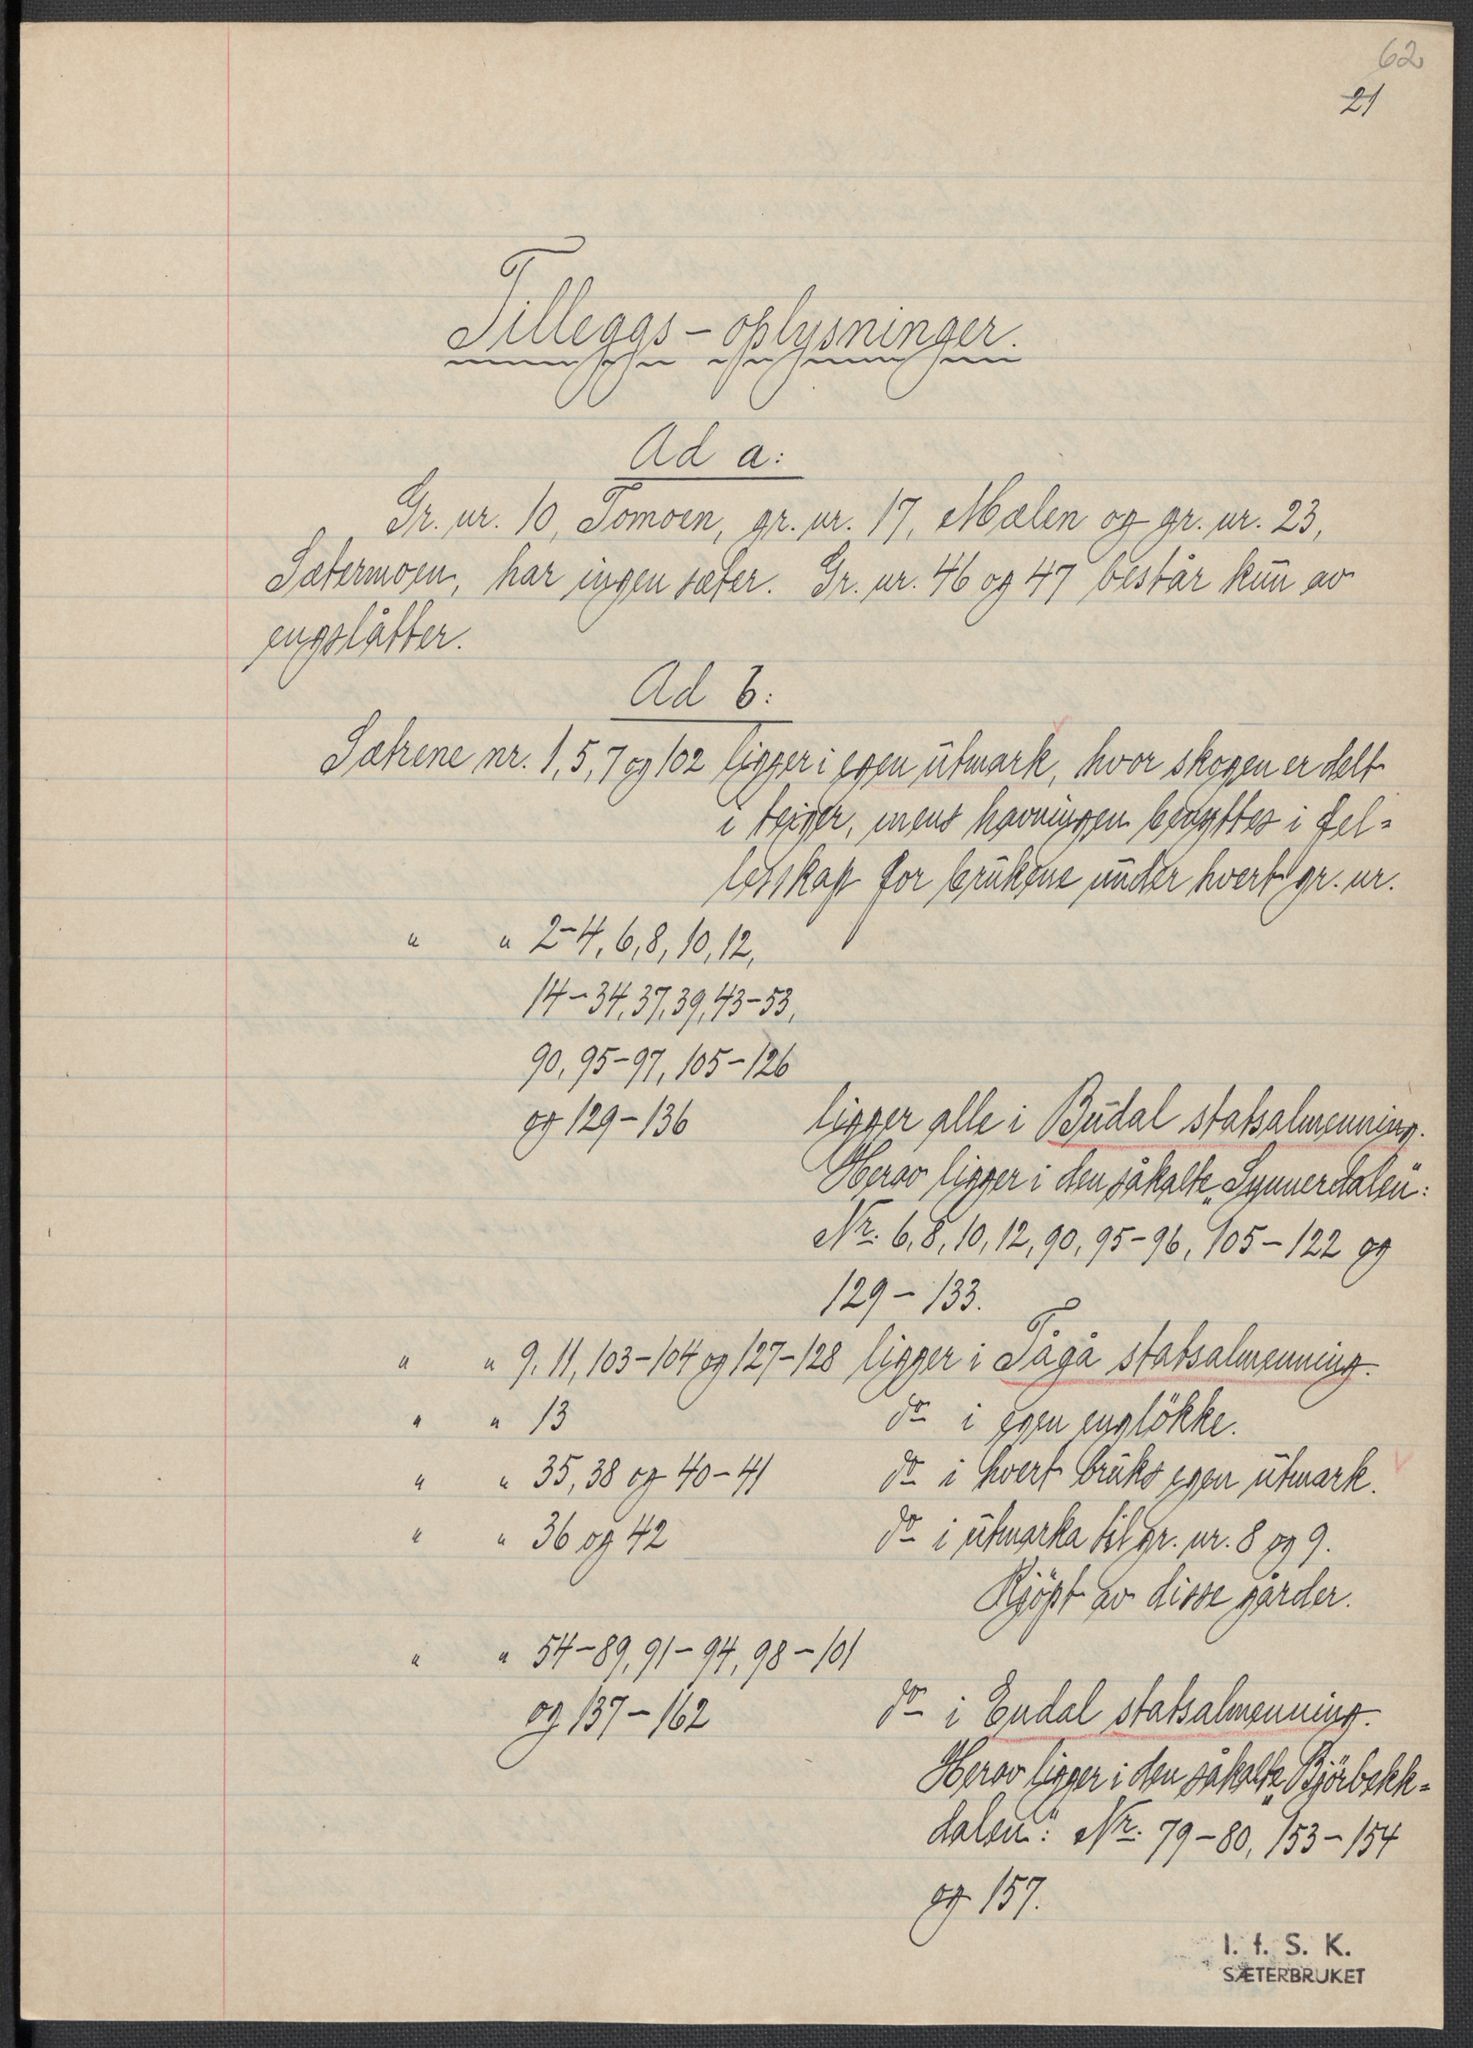 62
21
Tilleggs-oplysninger.
Ad a:
Gr. nr. 10, Tomoen, gr. nr. 17, Mælen og gr. nr. 23,
Sætermoen, har ingen sæter. Gr. nr. 46 og 47 består kun av
engslåtter.
Ad b:
Sætrene nr. 1, 5, 7 og 102 ligger i egen utmark, hvor skogen er delt
i teiger, mens havningen benyttes i fel=
lesskap for brukene under hvert gr. nr.
" " 2-4, 6, 8, 10, 12,
14-34, 37, 39, 43-53,
90, 95-97, 105-126
og 129-136 ligger alle i Budal statsalmenning.
Herav ligger i den såkalte „Synnerdalen":
Nr. 6, 8, 10, 12, 90, 95-96, 105-122 og
129-133.
" " 9, 11, 103-104 og 127-128 ligger i Tågå statsalmenning.
" " 13 do i egen engløkke.
" " 35, 38 og 40-41 do i hvert bruks egen utmark.
" " 36 og 42 do i utmarka til gr. nr. 8 og 9.
Kjöpt av disse gårder.
" " 54-89, 91-94, 98-101
og 137-162 do i Endal statsalmenning.
Herav ligger i den såkalte „Bjørbekk=
dalen": Nr. 79-80, 153-154
og 157.
I. f. S. K.
SÆTERBRUKET